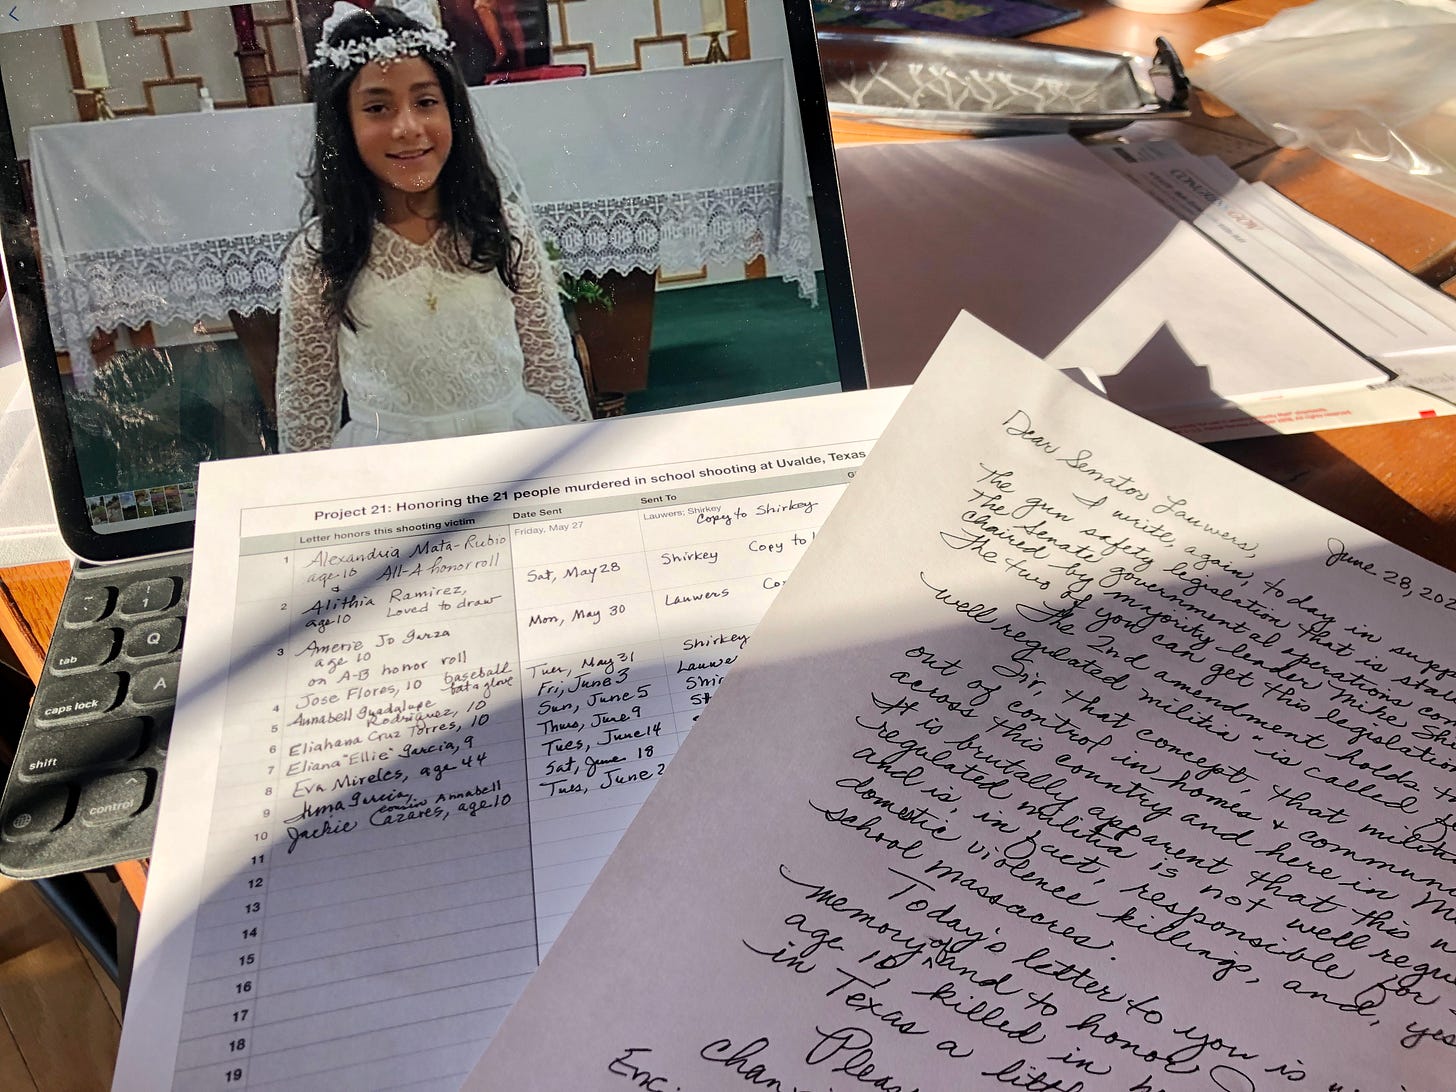 Project 21: Honoring the 21 people murdered in school shooting at Uvalde, Texas
Letter honors this shooting victim
Date Sent
Sent To
1 Alexandria Mata-Rubio
age 10 All-A honor roll
Friday, May 27
Lauwers; Shirkey
Copy to Shirkey
2 Alithia Ramirez,
age 10 Loved to draw
Sat, May 28
Shirkey Copy to
3 Amerie Jo Garza
age 10
on A-B honor roll
Mon, May 30
Lauwers
4 Jose Flores, 10 baseball
bat & glove
Tues, May 31
Shirkey
5 Annabell Guadalupe
Rodriguez, 10
Fri, June 3
6 Eliahana Cruz Torres, 10
Sun, June 5
7 Eliana "Ellie" Garcia, 9
Thurs, June 9
8 Eva Mireles, age 44
Tues, June 14
9 Irma Garcia,
Sat, June 18
10 Jackie Cazares, age 10
cousin Annabell
Tues, June 2
11
12
13
14
15
16
17
18
19
tab
Q
caps lock
A
shift
control
June 28, 202
Dear Senator Lauwers,
I write, again, today in supp
the gun safety legislation that is sta
the Senate governmental operations com
chaired by majority leader Mike Shi
The two of you can get this legislation
The 2nd amendment holds t
well regulated militia" is called f
Sir, that concept, that milit
out of control in homes & commun
across this country and here in M
It is brutally apparent that this w
regulated militia is not well regu
and is, in fact, responsible for
domestic violence killings, and, yes
school massacres.
Today's letter to you is
memory of and to honor
age 10, killed in h
in Texas a littl
Pleas
chan
Enc.